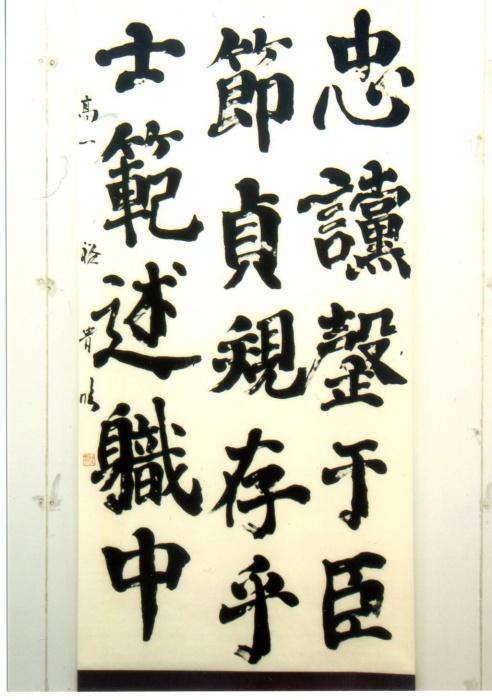 忠讜罄于臣
節貞規存乎
士範述職中
高一